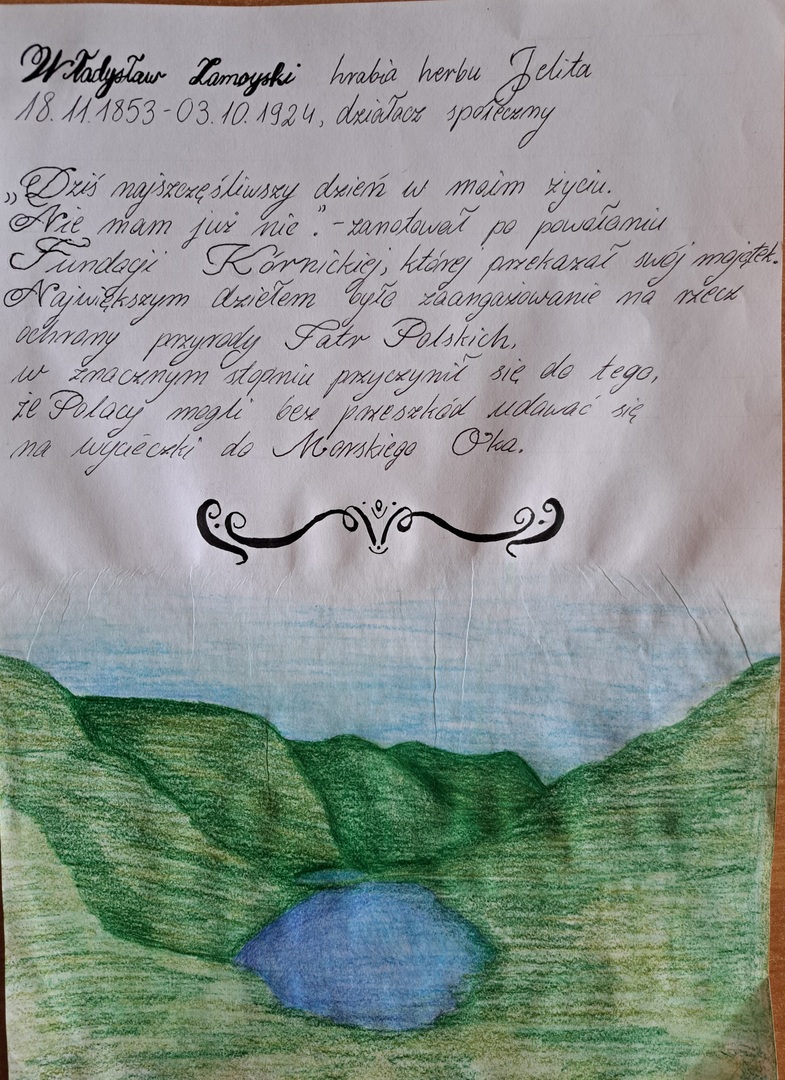 Władysław Zamoyski hrabia herbu Jelita
18.11.1853-03.10.1924, działacz społeczny
„Dziś najszczęśliwszy dzień w moim życiu.
Nie mam już nic." - zanotował po powołaniu
Fundacji Kórnickiej, której przekazał swój majątek.
Największym dziełem było zaangażowanie na rzecz
ochrony przyrody Tatr Polskich,
w znacznym stopniu przyczynił się do tego,
że Polacy mogli bez przeszkód udawać się
na wycieczki do Morskiego Oka.